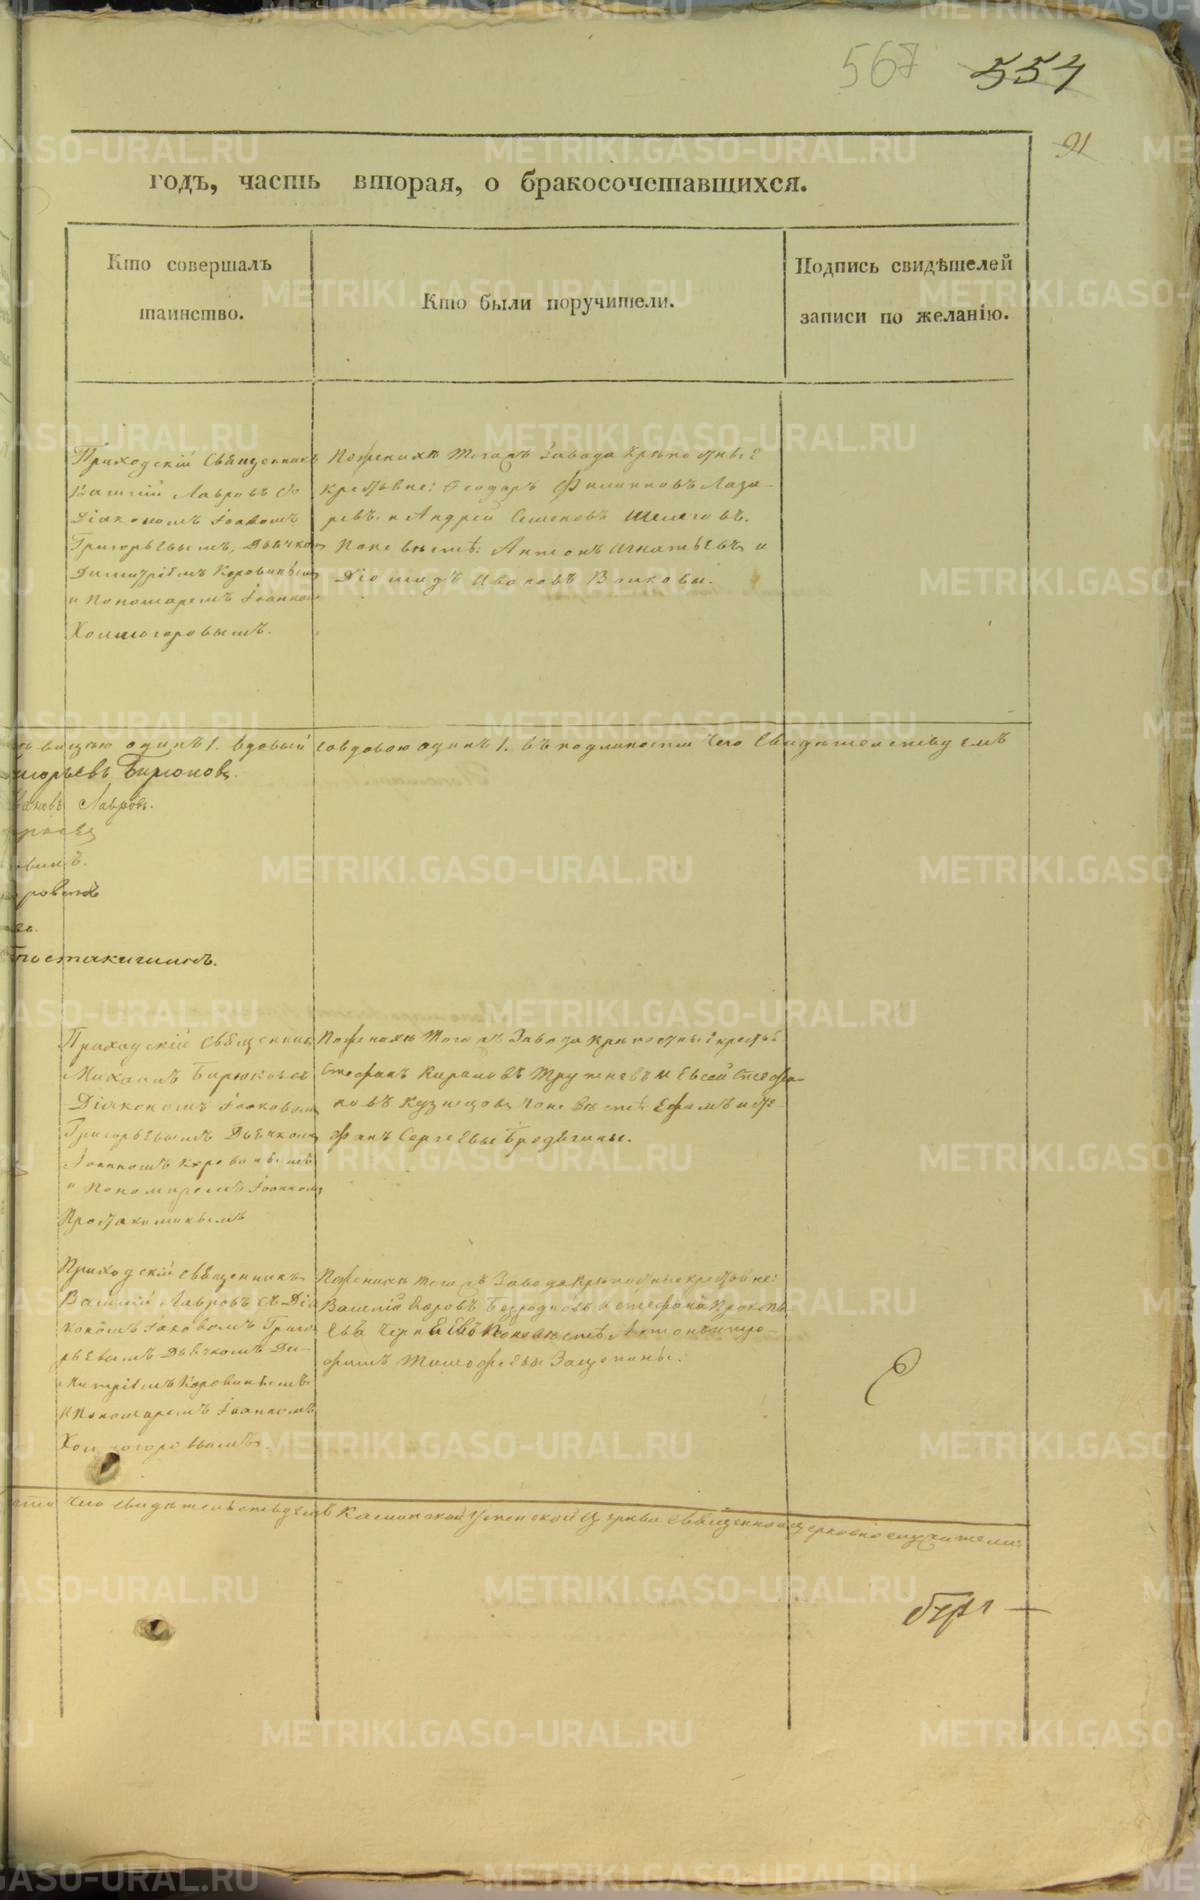 567 554
91
годъ, часть вторая, о бракосочетавшихся.
Кто совершалъ
таинство.
Кто были поручители.
Подпись свидѣтелей
записи по желанію.
Приходскій Священникъ
Василій Лавровъ со
Діакономъ Іаковомъ
Григорьевымъ, Дьячкомъ
Димитріемъ Коровинымъ
и Пономаремъ Іоанномъ
Холмогоровымъ.
По женихѣ того жъ Завода Крѣпостные
крестьяне: Феодоръ Филиповъ Лаза-
ревъ и Андрей Семеновъ Шелеговъ.
По невѣстѣ: Антонъ Игнатьевъ и
Діомидъ Ивановъ Волковы.
вицею одинъ 1. вдовый со вдовою одинъ 1. въ подлинности чего Свидѣтельствуемъ
Бирюковъ.
Лавровъ.
Простакишинъ.
Приходскій Священникъ
Михаилъ Бирюковъ съ
Діакономъ Іаковомъ
Григорьевымъ Дьячкомъ
Іоанномъ Коровинымъ
и Пономаремъ Іоанномъ
Простакишинымъ
По женихѣ того жъ Завода крѣпостные крестья
Стефанъ Кириловъ Трутневъ и Евсей Стефа-
новъ Кузнецовъ по невѣстѣ Ефимъ и
фанъ Сергеевы Бродягины.
Приходскій священникъ
Василій Лавровъ съ Діа
кономъ Іаковомъ Григо
рьевымъ Дьячкомъ Ди-
митріемъ Коровинымъ
и Пономаремъ Іоанномъ
Холмогоровымъ.
По женихѣ того жъ Завода крѣпостные крестьяне:
Василій Безродновъ и Стефанъ Прокопь
евъ по невѣстѣ Антонъ и Тро-
фимъ Тимофеевы Защепины.
чего свидѣтельствуемъ Каслинской Успенской Церкви священно и церковнослужители:
METRIKI.GASO-URAL.RU